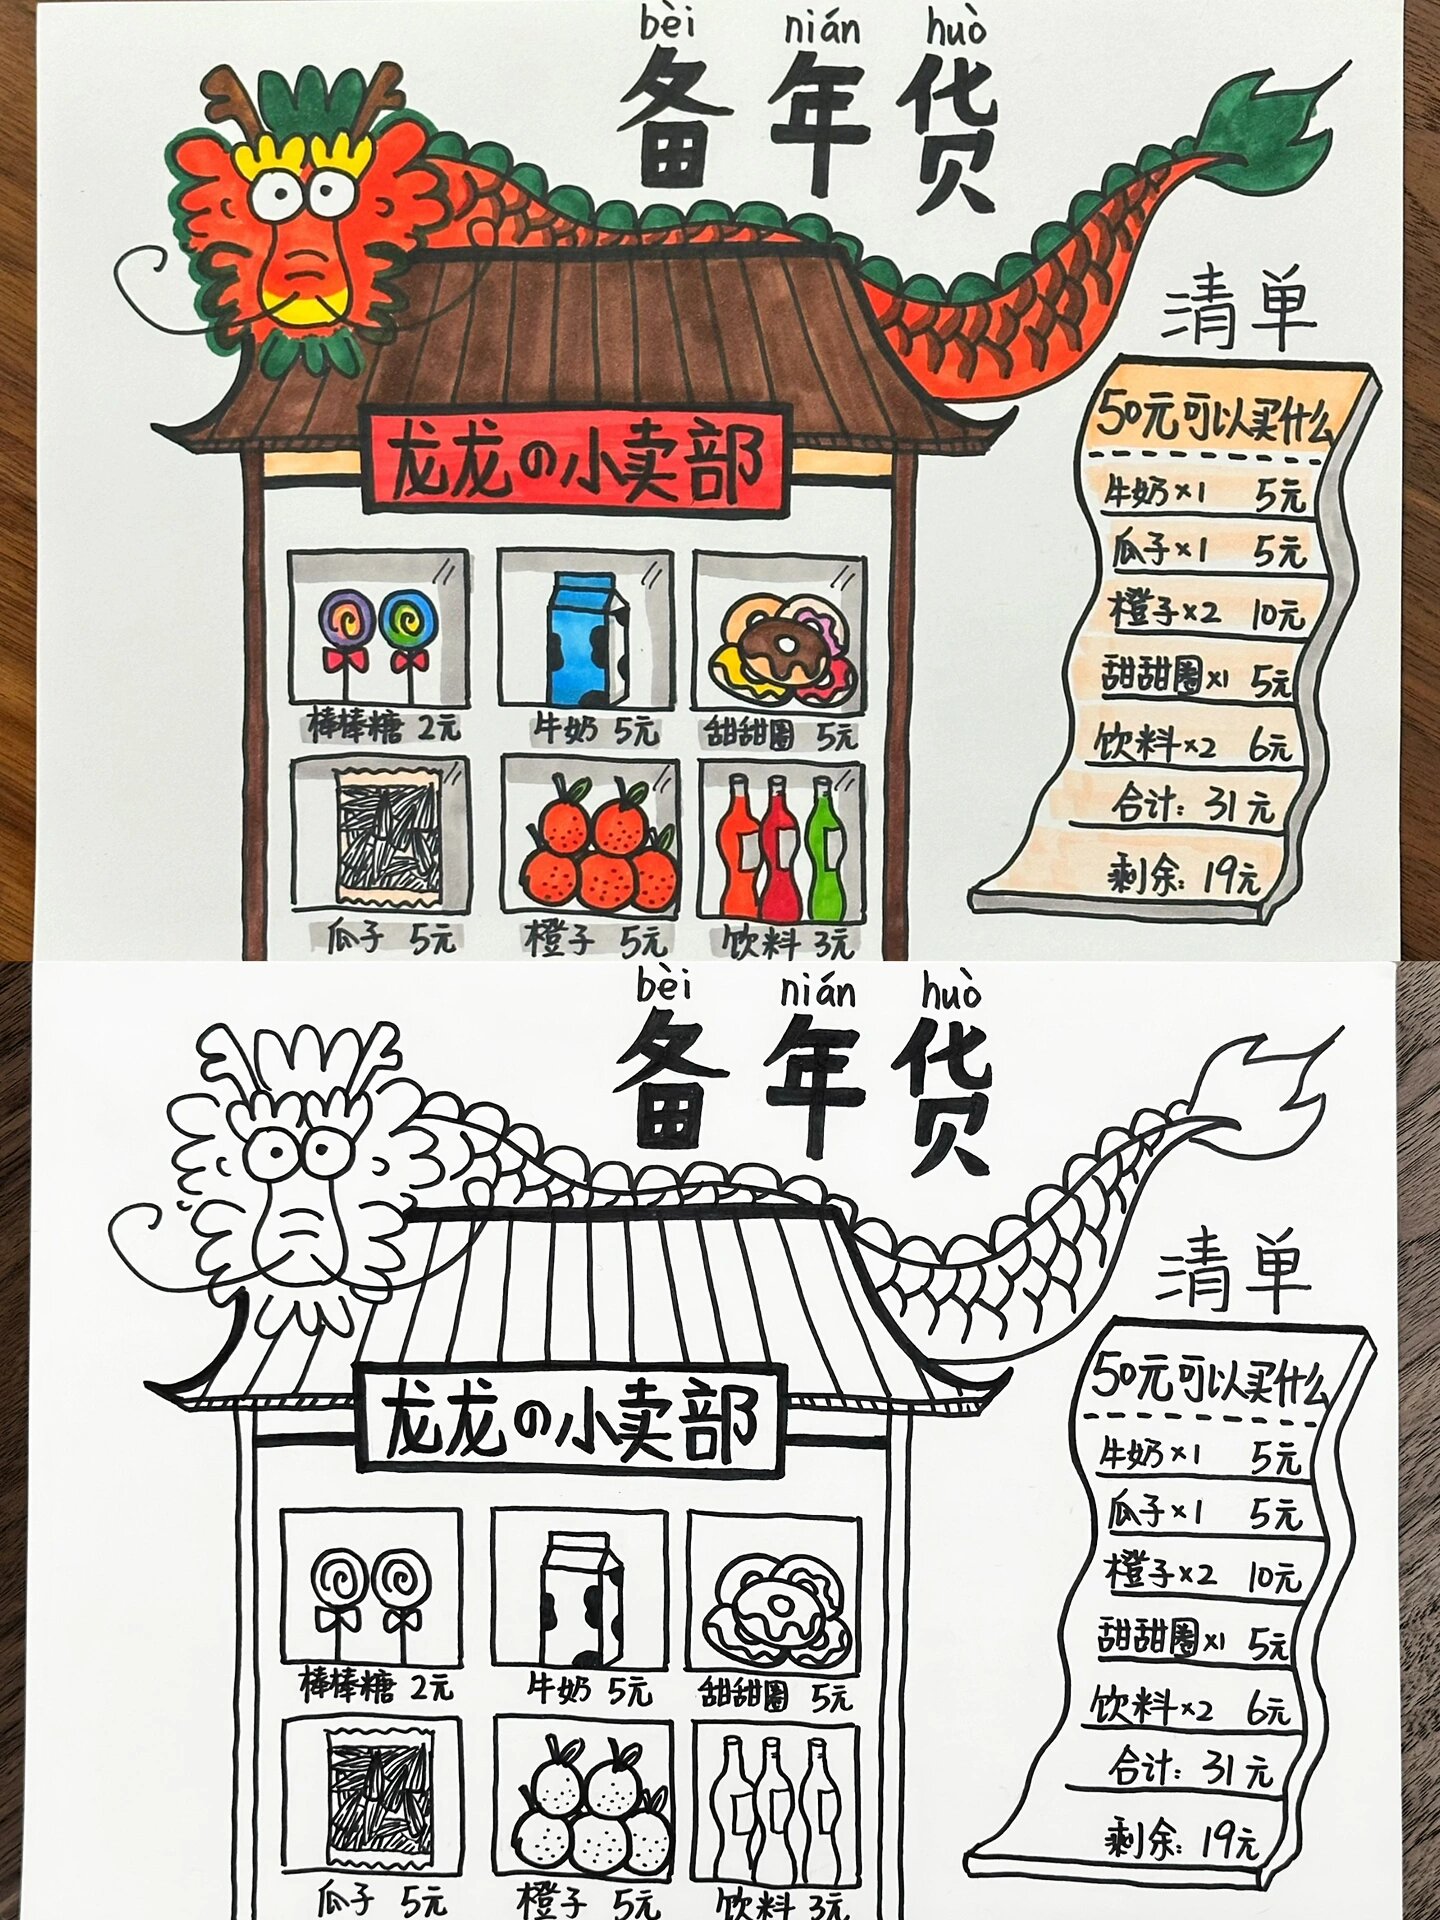 bèi nián huò
备年货
清单
龙龙の小卖部
50元可以买什么
牛奶×1 5元
瓜子×1 5元
橙子×2 10元
甜甜圈×1 5元
饮料×2 6元
合计：31元
剩余：19元
棒棒糖 2元
牛奶 5元
甜甜圈 5元
瓜子 5元
橙子 5元
饮料 3元
bèi nián huò
备年货
清单
龙龙の小卖部
50元可以买什么
牛奶×1 5元
瓜子×1 5元
橙子×2 10元
甜甜圈×1 5元
饮料×2 6元
合计：31元
剩余：19元
棒棒糖 2元
牛奶 5元
甜甜圈 5元
瓜子 5元
橙子 5元
饮料 3元